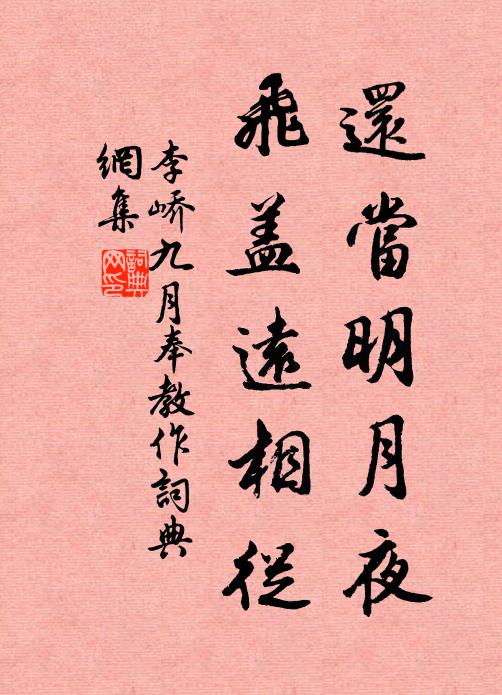 還當明月夜
飛盖遠相從
李嶠九月奉教作詞典
網集
詞典
网印